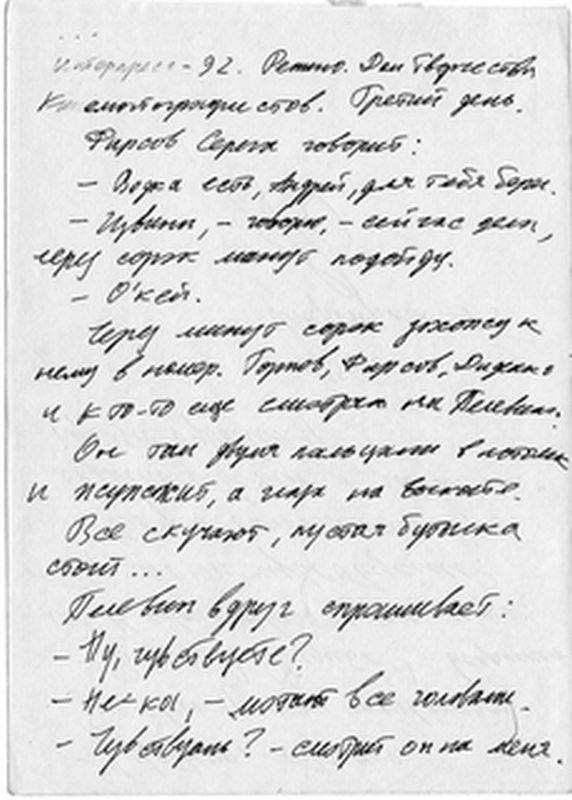 ...
Интерпресс-92. Репино. Дом Творчества
Кинематографистов. Третий день.
Фирсов Серега говорит:
– Водка есть, Андрей, для тебя берег.
– Извини, – говорю, – сейчас дела,
через сорок минут подойду.
– О'кей.
Через минут сорок захожу к
нему в номер. Гортов, Фирсов, Диденко
и кто-то еще смотрят на Пелевина.
Он там двумя пальцами в потолок
и, а глаза на выкате.
Все скучают, пустая бутылка
стоит...
Пелевин вдруг спрашивает:
– Ну, чувствуете?
– Не-ка, – мотают все головами.
– Чувствуешь? – смотрит он на меня.